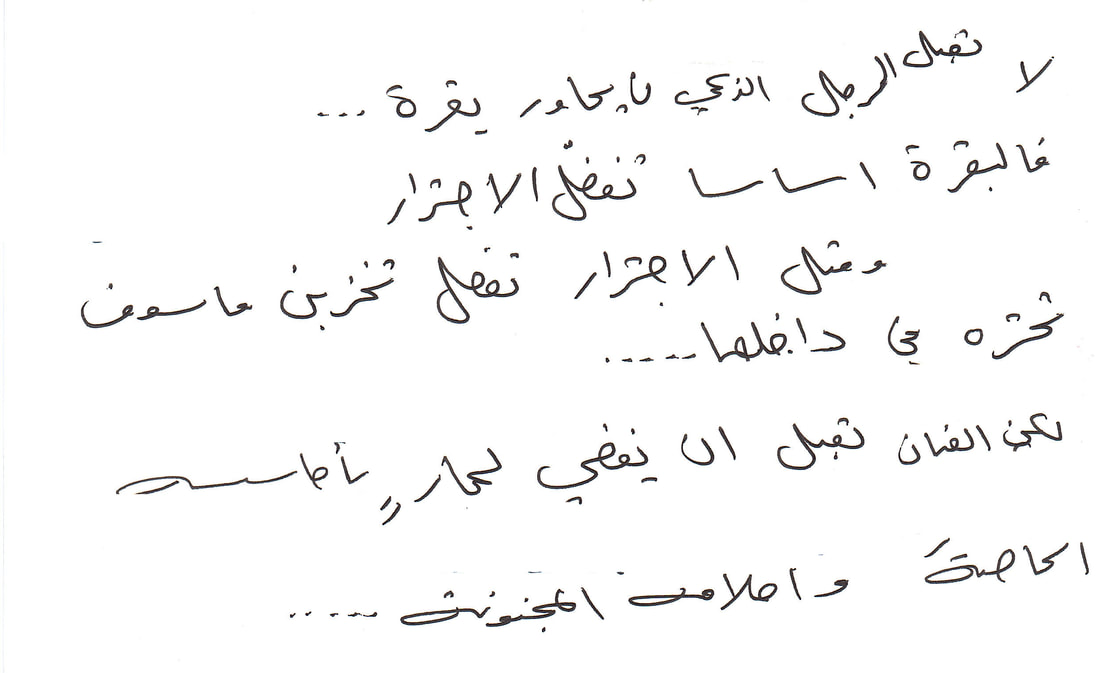 لا تقبل الرجل الذكي بأن يحاور بقرة ...
فالبقرة اساسا تفضّل الاجترار
وقبل الاجترار تفضل تخزين ما سوف
تجتره في داخلها.....
لكن الفنان تقبل ان يفضي لحمارٍ بأحاسيسه
الخاصةَ واحلامه المجنونة .....